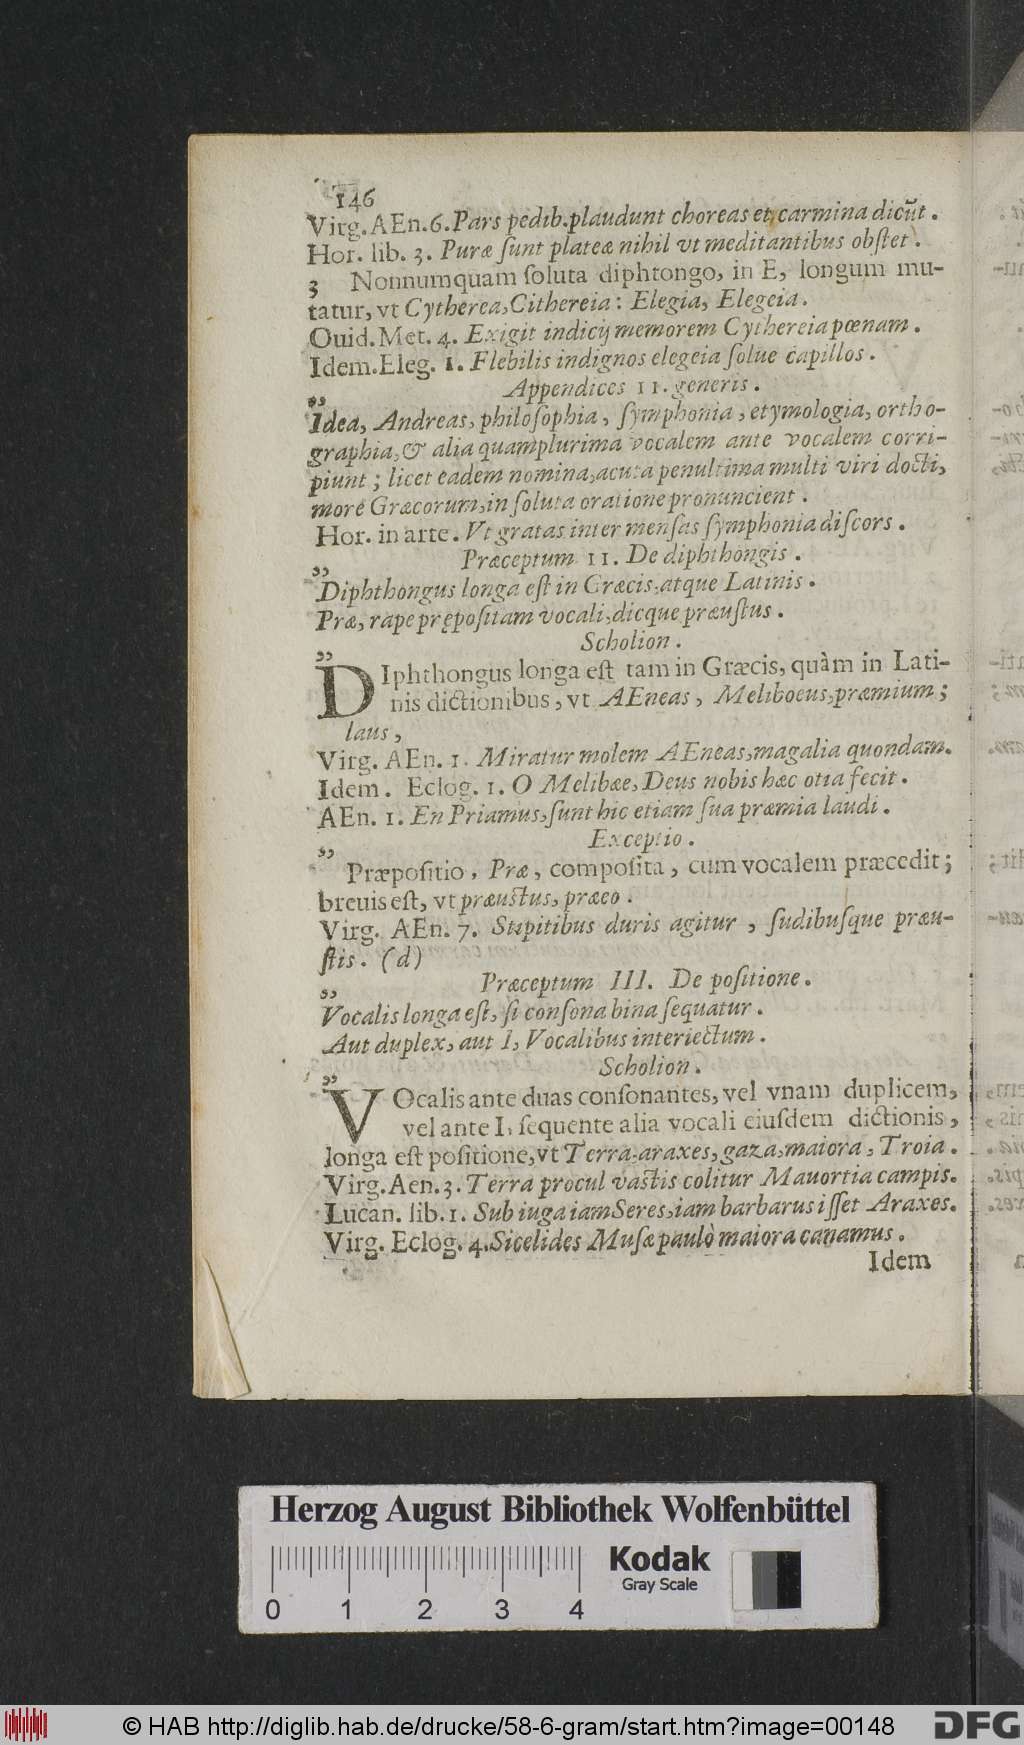 146
Virg. AEn. 6. Pars pedib. plaudunt choreas et, carmina dicũt.
Hor. lib. 3. Puræ ſunt plateæ nihil vt meditantibus obſtet.
3 Nonnumquam ſoluta diphtongo, in E, longum mu-
tatur, vt Cytherea, Cithereia: Elegia, Elegeia.
Ouid. Met. 4. Exigit indicij memorem Cythereia pœnam.
Idem. Eleg. 1. Flebilis indignos elegeia ſolue capillos.
Appendices 11. generis.
„
Idea, Andreas, philoſophia, ſymphonia, etymologia, ortho-
graphia, & alia quamplurima vocalem ante vocalem corri-
piunt; licet eadem nomina, acuta penultima multi viri docti,
more Græcorum, in ſoluta oratione pronuncient.
Hor. in arte. Vt gratas inter menſas ſymphonia diſcors.
Præceptum 11. De diphthongis.
„
Diphthongus longa eſt in Græcis, atque Latinis.
Præ, rape prępoſitam vocali, dicque præuſtus.
Scholion.
„
DIphthongus longa eſt tam in Græcis, quàm in Lati-
nis dictionibus, vt AEneas, Meliboeus, præmium;
laus,
Virg. AEn. 1. Miratur molem AEneas, magalia quondam.
Idem. Eclog. 1. O Melibæe, Deus nobis hæc otia fecit.
AEn. 1. En Priamus, ſunt hic etiam ſua præmia laudi.
Exceptio.
„
Præpoſitio, Præ, compoſita, cum vocalem præcedit;
breuis eſt, vt præustus, præco.
Virg. AEn. 7. Stipitibus duris agitur, ſudibuſque præu-
ſtis. (d)
Præceptum III. De poſitione.
„
Vocalis longa eſt, ſi conſona bina ſequatur.
Aut duplex, aut I, Vocalibus interiectum.
Scholion.
„
VOcalis ante duas conſonantes, vel vnam duplicem,
vel ante I, ſequente alia vocali eiuſdem dictionis,
longa eſt poſitione, vt Terra, araxes, gaza, maiora, Troia.
Virg. Aen. 3. Terra procul vastis colitur Mauortia campis.
Lucan. lib. 1. Sub iuga iam Seres, iam barbarus iſſet Araxes.
Virg. Eclog. 4. Sicelides Muſæ paulò maiora canamus.
Idem
Herzog August Bibliothek Wolfenbüttel
Kodak
Gray Scale
0 1 2 3 4
© HAB http://diglib.hab.de/drucke/58-6-gram/start.htm?image=00148
DFG